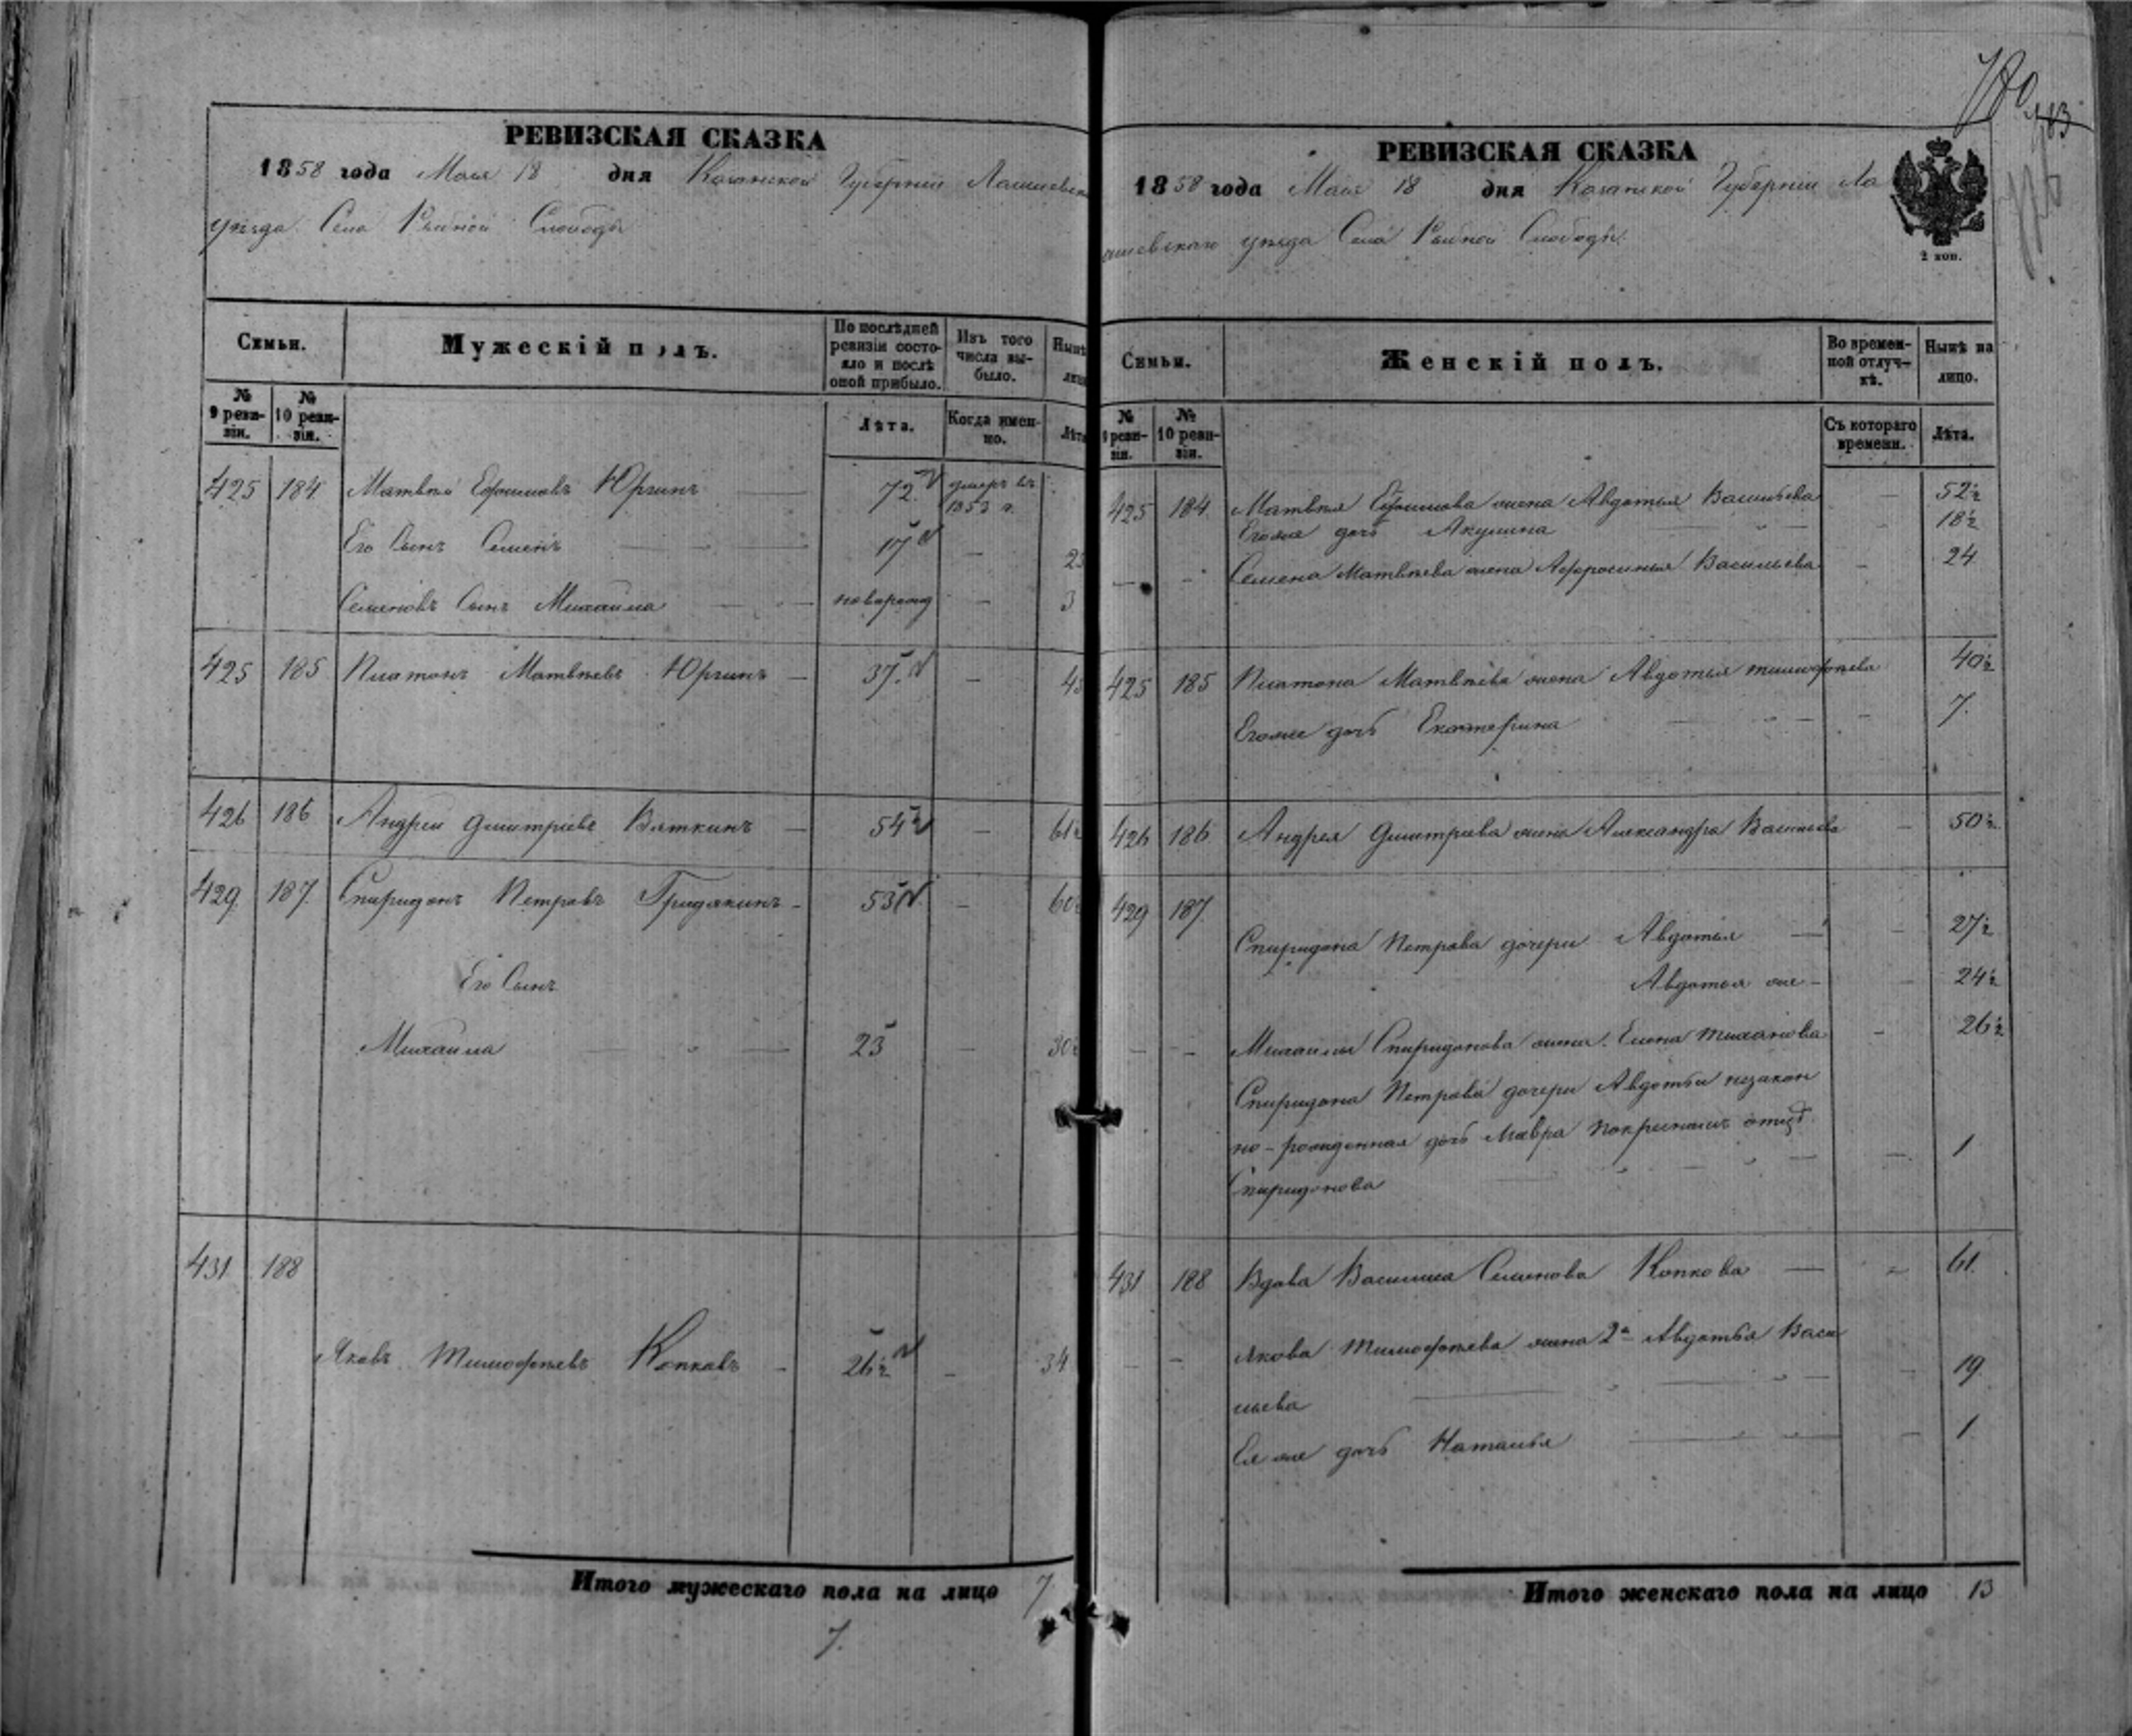 РЕВИЗСКАЯ СКАЗКА
1858 года Мая 18 дня Казанской Губерніи Лаишевска
уѣзда Села Рыбной Слободы
Семьи.
Мужескій полъ.
По послѣдней ревизіи состояло и послѣ оной прибыло.
Изъ того числа выбыло.
Нынѣ
лицо
№ 9 ревизіи.
№ 10 ревизіи.
Лѣта.
Когда именно.
Лѣта
425 184 Матвѣй Ефимовъ Юргинъ — 72 умеръ въ 1853 г.
Его Сынъ Семенъ — 17 —
Семеновъ Сынъ Михаила — новорожд — 3
425 185 Платонъ Матвѣевъ Юргинъ — 37 —
426 186 Андрей Дмитріевъ Вяткинъ — 54½ — 61½
429 187 Спиридонъ Петровъ Гридякинъ — 53 — 60
Его Сынъ
Михаила — 23 — 30
431 188
Яковъ Тимофѣевъ Копковъ — 26½ — 34
Итого мужескаго пола на лицо 7
7.
180
183
РЕВИЗСКАЯ СКАЗКА
1858 года Мая 18 дня Казанской Губерніи Ла
ишевскаго уѣзда Села Рыбной Слободы
2 коп.
Семьи.
Женскій полъ.
Во временной отлучкѣ.
Нынѣ на лицо.
№ 9 ревизіи.
№ 10 ревизіи.
Съ котораго времени.
Лѣта.
425 184 Матвѣя Ефимова жена Авдотья Васильева — 52½
Егоже дочь Акулина — 18½
— — Семена Матвѣева жена Афросинья Васильева — 24
425 185 Платона Матвѣева жена Авдотья тимофѣева 40½
Егоже дочь Екатерина — 7.
426 186 Андрея Дмитріева жена Александра Васильева — 50½
429 187. Спиридона Петрова дочери Авдотья — 27½
Авдотья же — 24½
— — Михаилы Спиридонова жена Елена тиханова — 26½
Спиридона Петрова дочери Авдотьи незакон
но-рожденная дочь Мавра
Спиридонова — 1
431 188 Вдова Василиса Семенова Копкова — 61.
— — Якова Тимофѣева жена 2я Авдотья Васи
льева — 19
Ея же дочь Наталья — 1
Итого женскаго пола на лицо 13